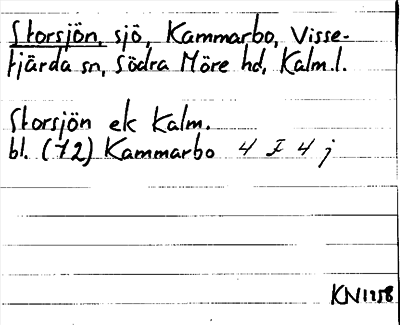 Storsjön, sjö, Kammarbo, Visse-
fjärda sn, Södra Möre hd, Kalm.l.
Storsjön ek Kalm.
bl. (72) Kammarbo 4 I 4 j
KN1258